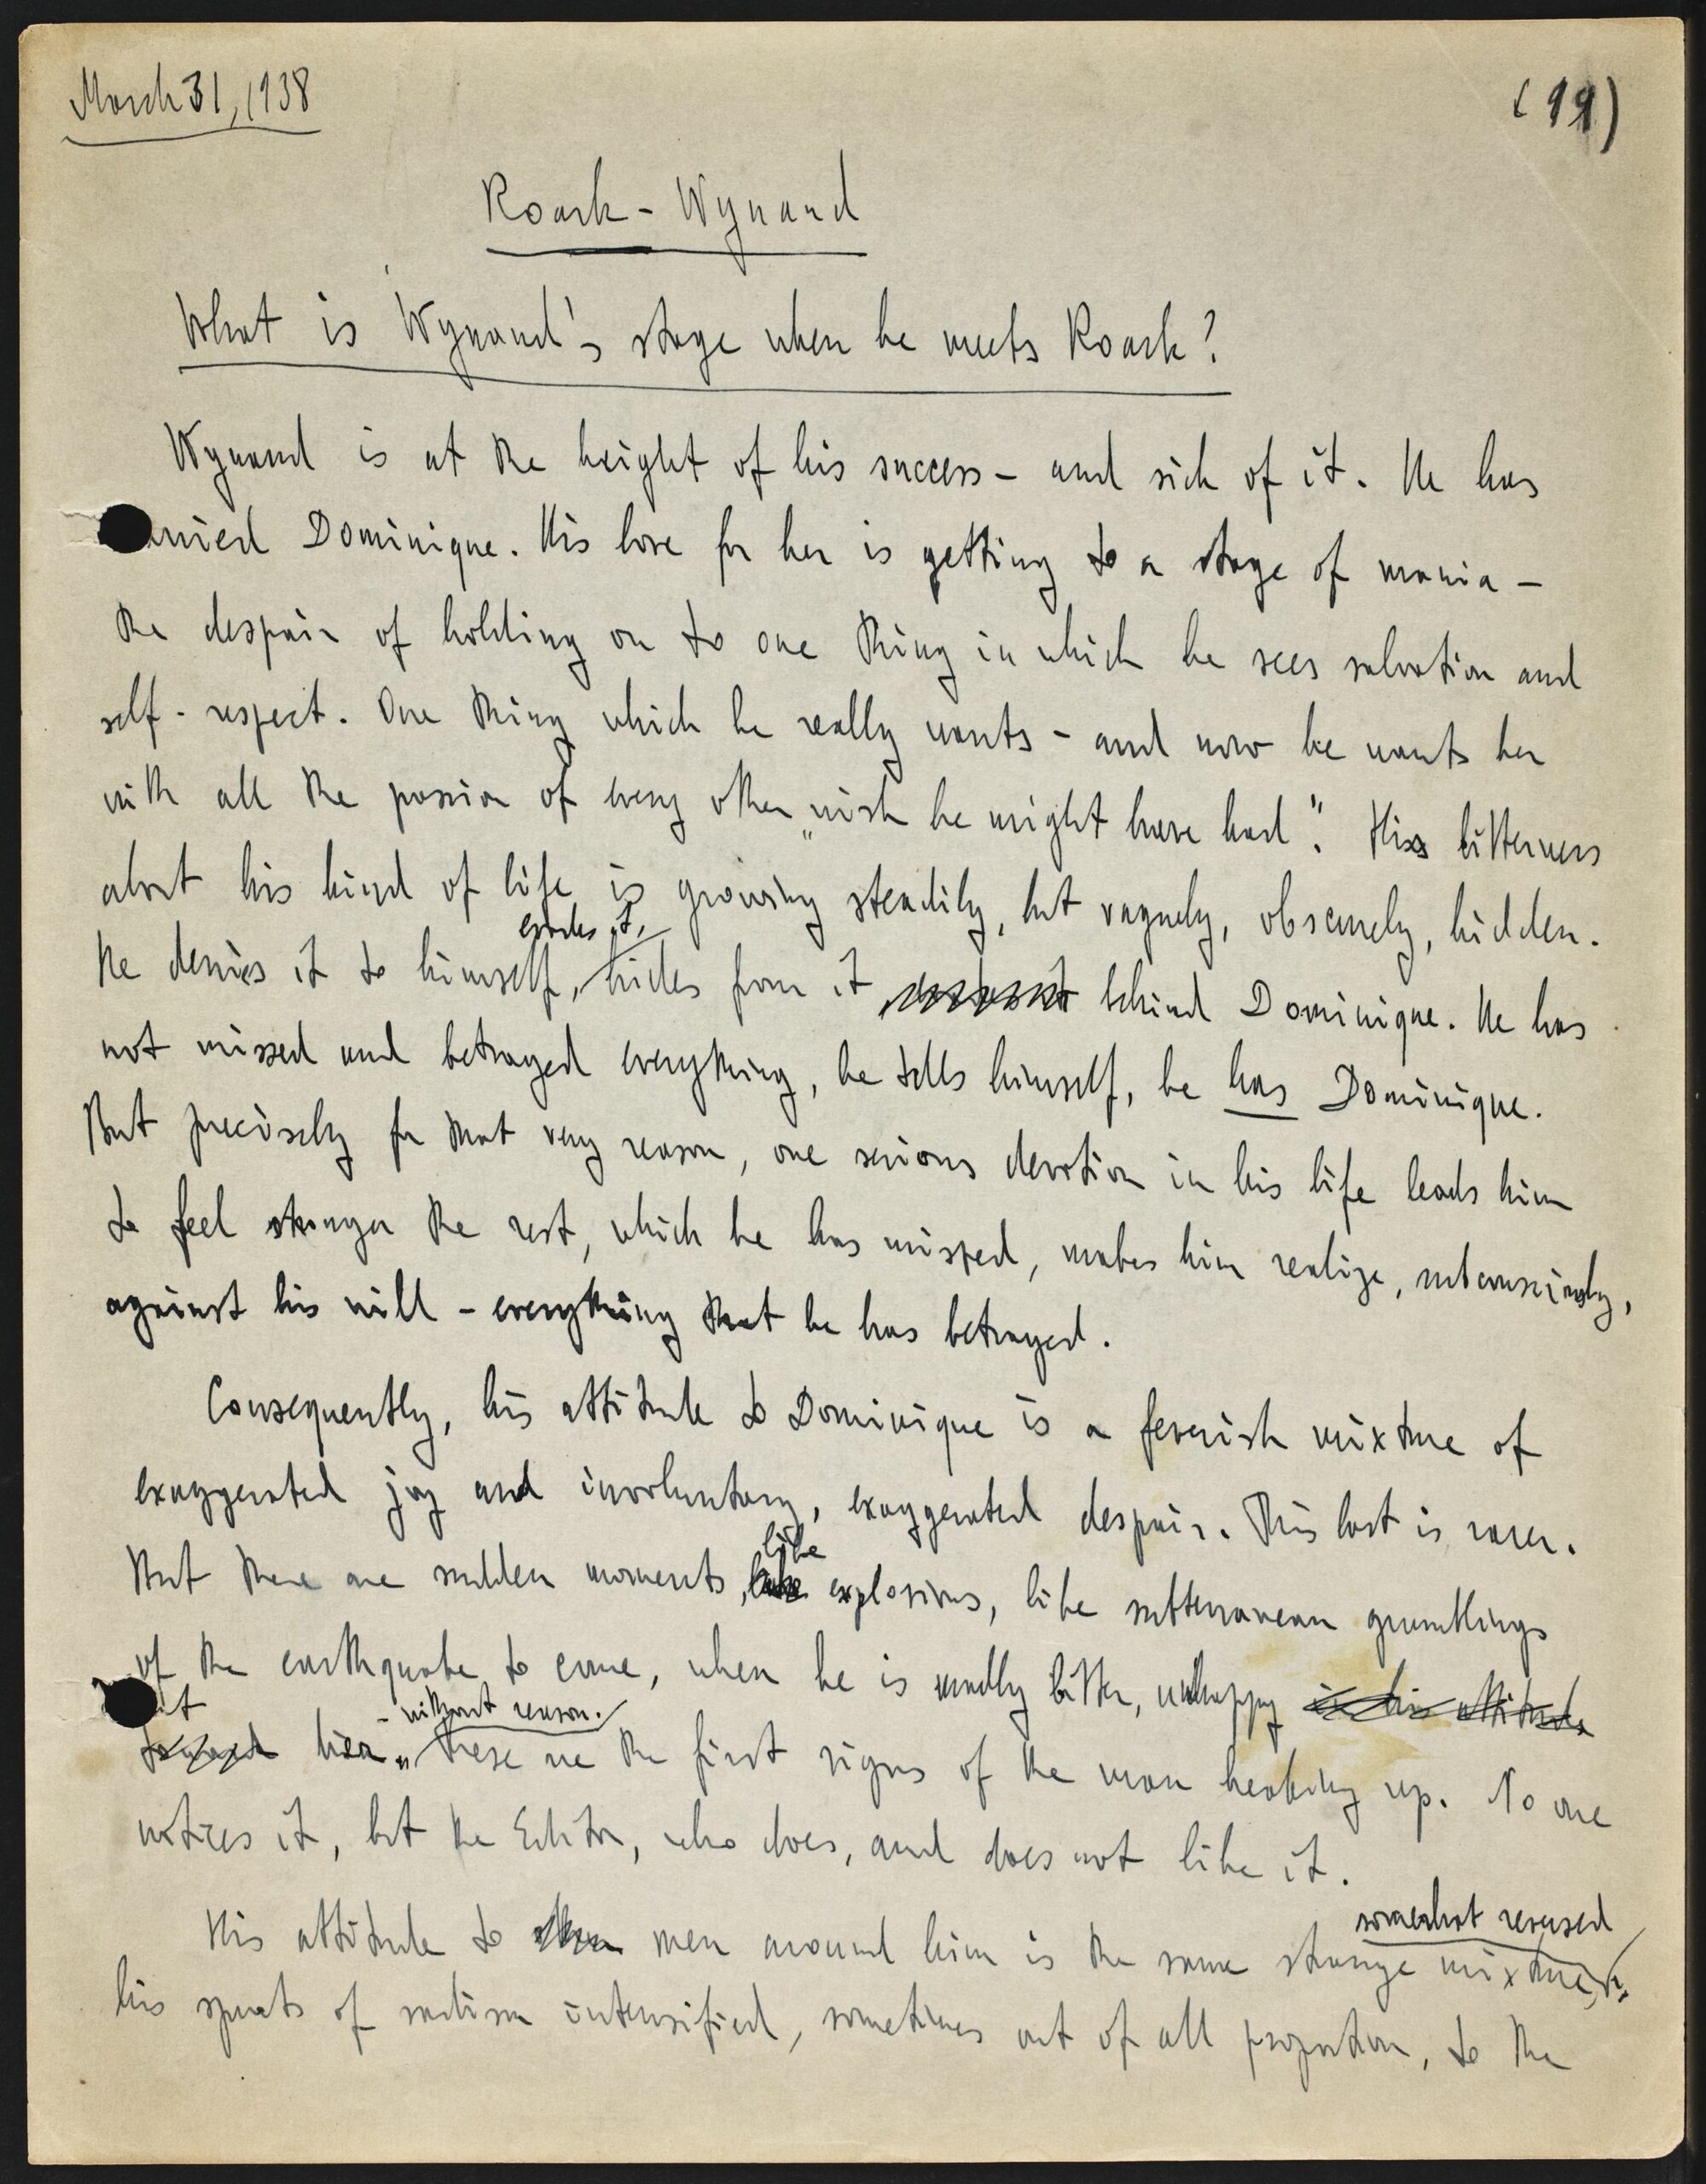 March 31, 1938
(99)
Roark - Wynand
What is Wynand's stage when he meets Roark?
Wynand is at the height of his success - and sick of it. He has
married Dominique. His love for her is getting to a stage of mania -
the despair of holding on to one thing in which he sees salvation and
self-respect. One thing which he really wants - and now he wants her
with all the passion of every other "wish he might have had". His bitterness
about his kind of life is growing steadily, but vaguely, obscurely, hidden.
evades it,
He denies it to himself, hides from it behind Dominique. He has
not missed and betrayed everything, he tells himself, he has Dominique.
But precisely for that very reason, one serious devotion in his life leads him
to feel stronger the rest, which he has missed, makes him realize, subconsciously,
against his will - everything that he has betrayed.
Consequently, his attitude to Dominique is a feverish mixture of
exaggerated joy and involuntary, exaggerated despair. This last is rarer.
like
But there are sudden moments, explosions, like subterranean grumblings
of the earthquake to come, when he is madly bitter, unhappy in his attitude
at - without reason.
toward her. These are the first signs of the man breaking up. No one
notices it, but the Editor, who does, and does not like it.
somewhat reversed
His attitude to men around him is the same strange mixture,
his spurts of sadism intensified, sometimes out of all proportion, to the